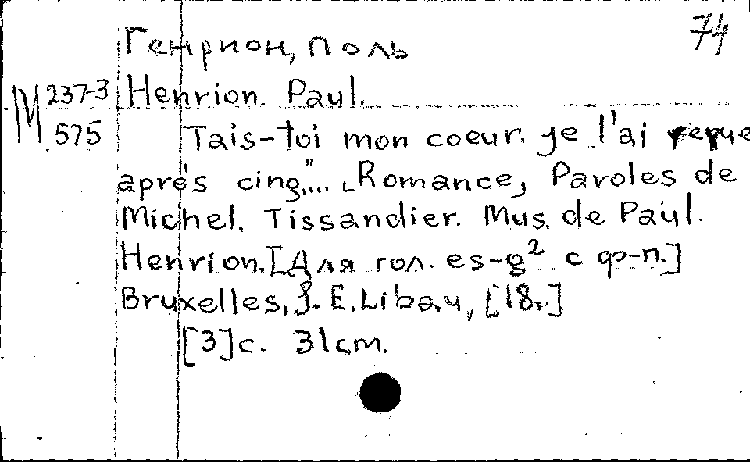 74
Генрион, Поль
М 237-3 Henrion. Paul.
575 Tais-toi mon coeur. je l'ai
après cinq"... Romance, Paroles de
Michel. Tissandier. Mus. de Paul.
Henrion. [Для гол. es-g² с ф-п.]
Bruxelles, J. E. Libau, [18..]
[3] с. 31cm.